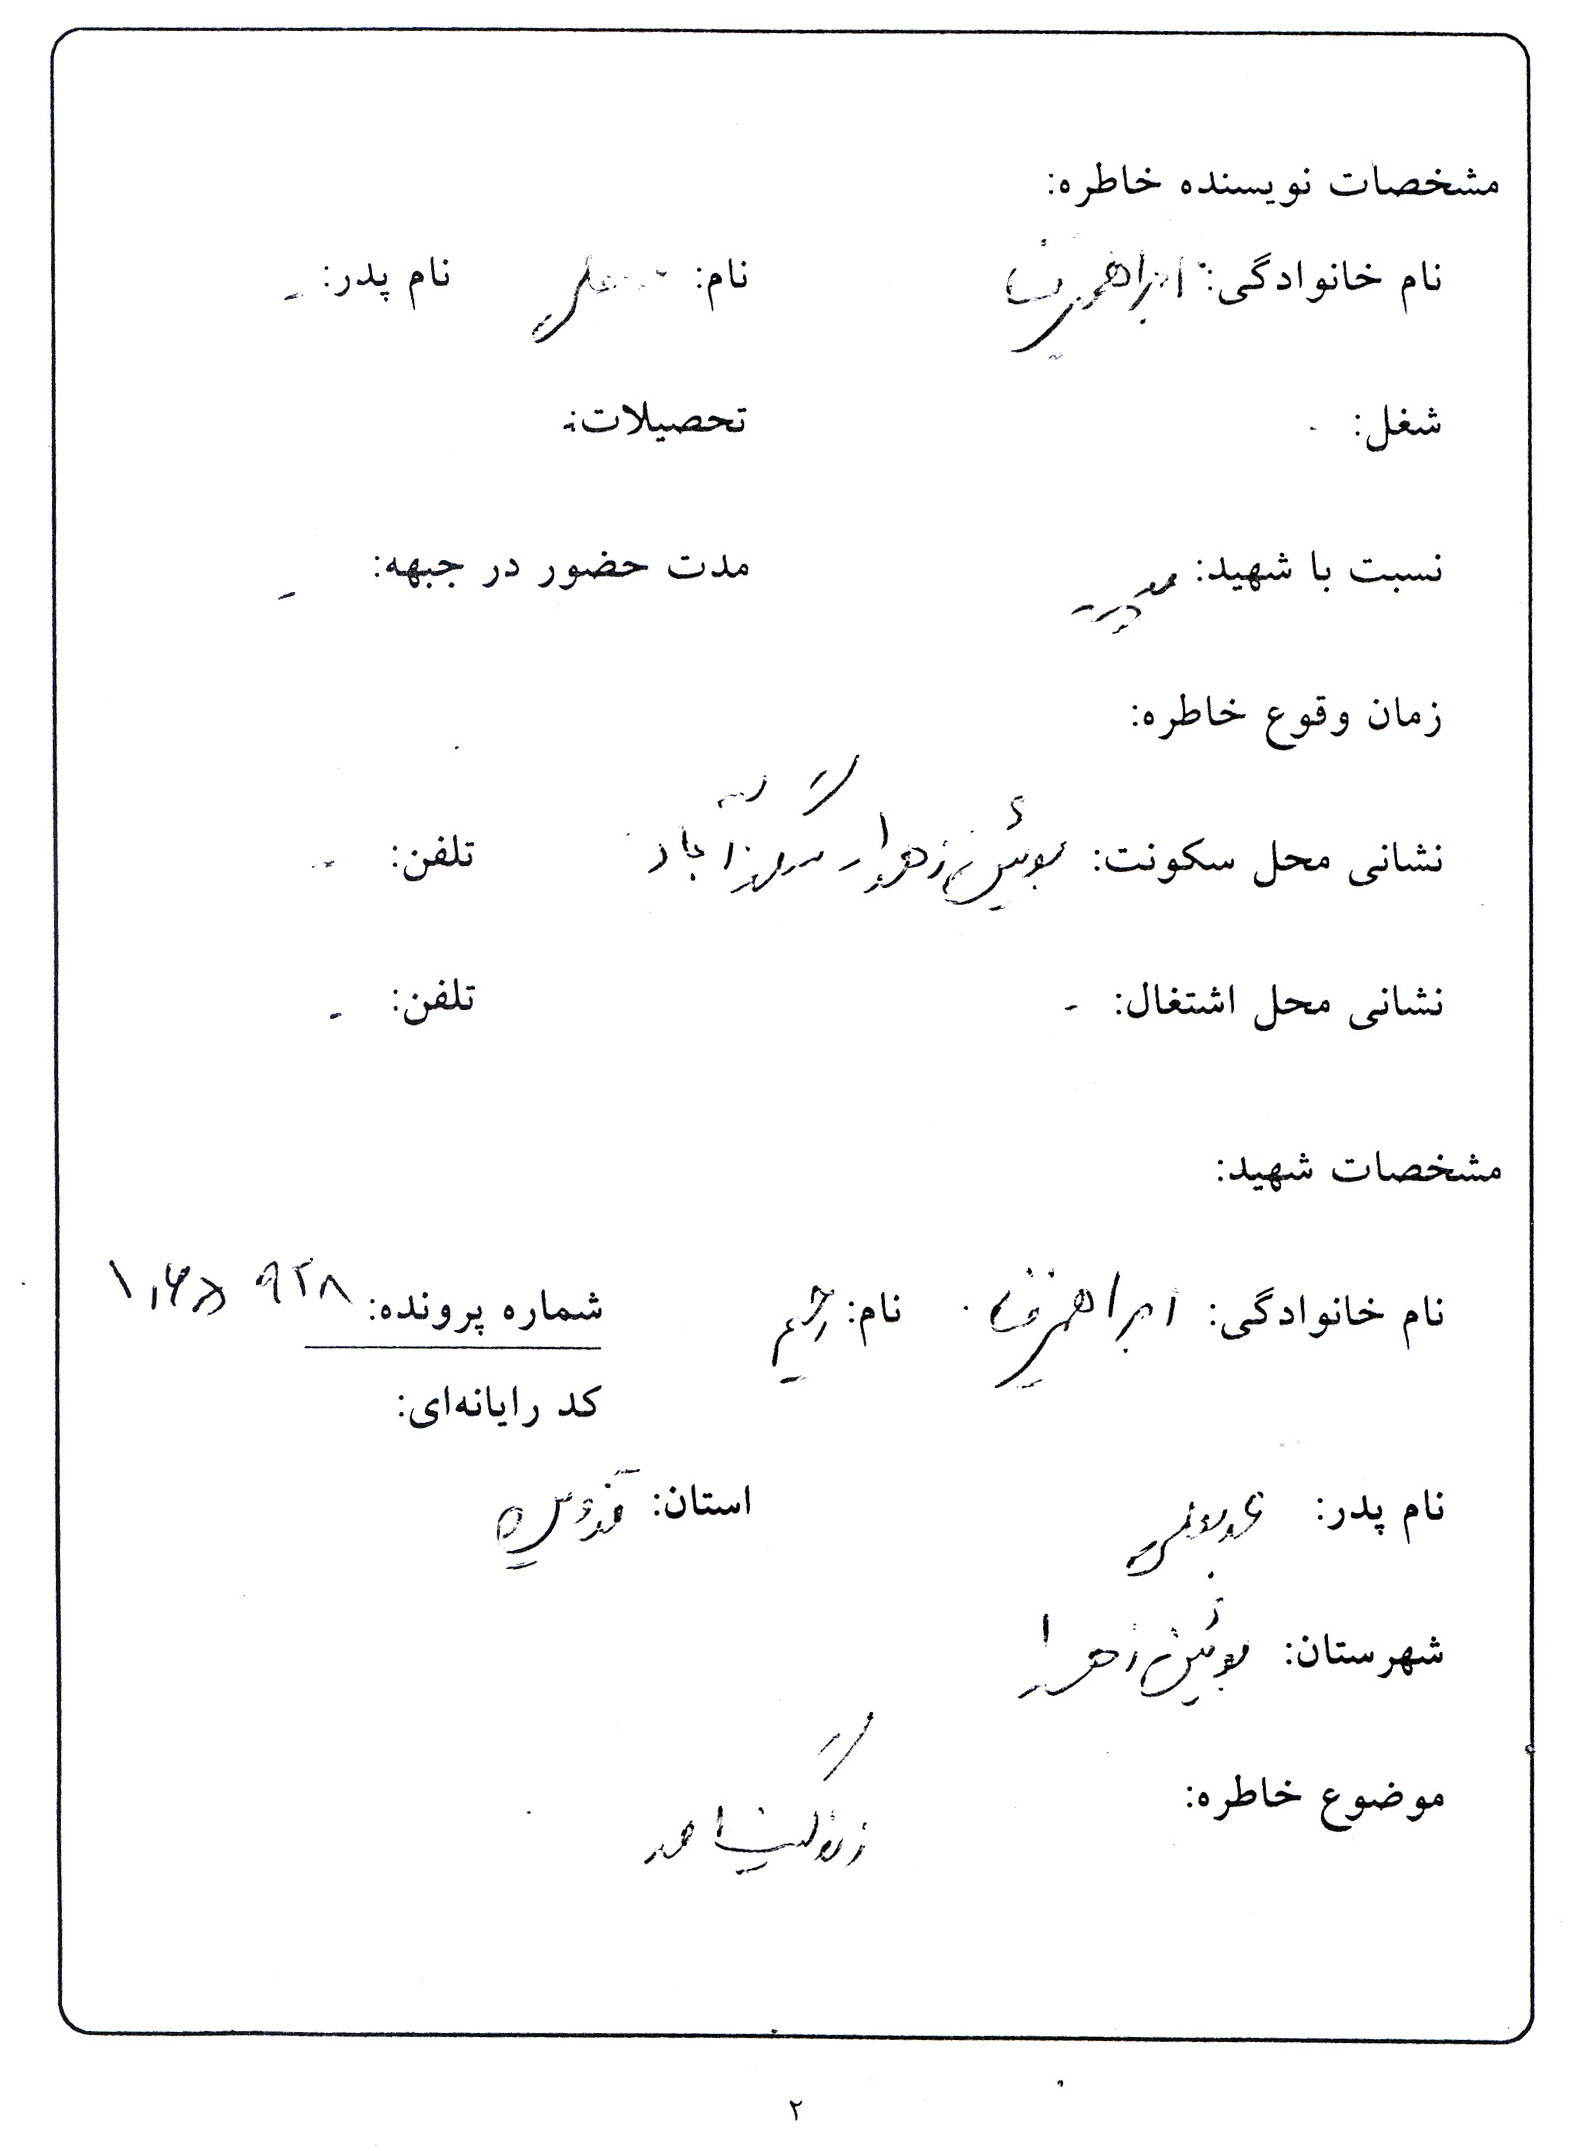 مشخصات نویسنده خاطره:
نام خانوادگی: ابراهیمی نام: علی نام پدر: -
شغل: - تحصیلات: -
نسبت با شهید: پدر مدت حضور در جبهه: -
زمان وقوع خاطره:
نشانی محل سکونت: بوئین زهرا - تلفن: -
نشانی محل اشتغال: - تلفن: -
مشخصات شهید:
نام خانوادگی: ابراهیمی نام: رحیم شماره پرونده:
کد رایانه‌ای:
نام پدر: استان: قزوین
شهرستان: بوئین زهرا
موضوع خاطره:
۲